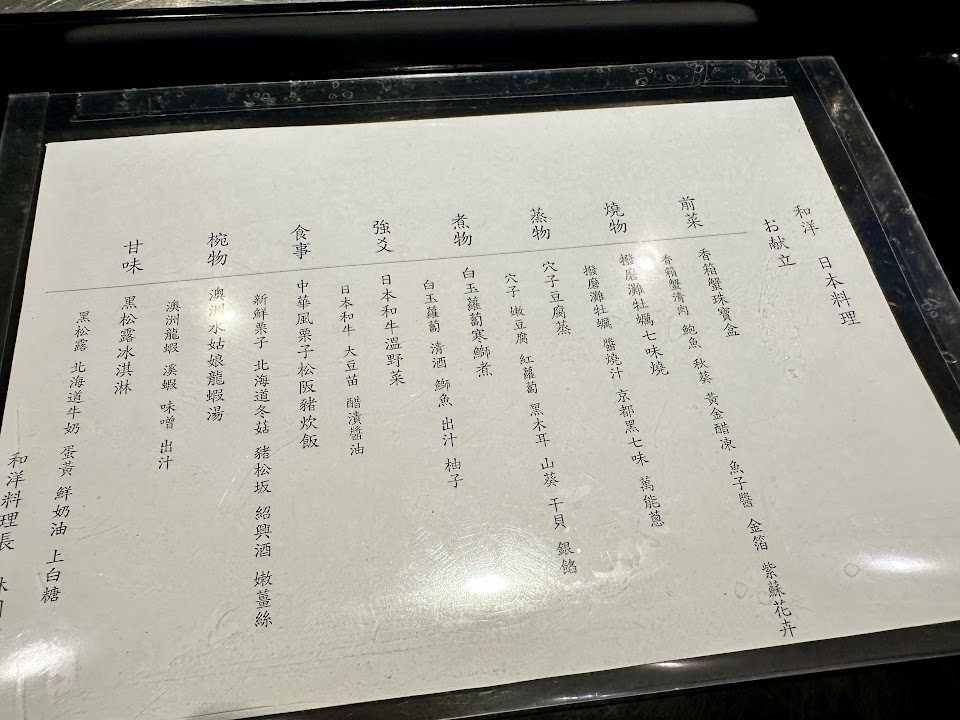 和洋 日本料理
お献立
前菜
香箱蟹珠寶盒
香箱蟹清肉 鮑魚 秋葵 黃金醋凍 魚子醬 金箔 紫蘇花卉
燒物
撥磨灘牡蠣七味燒
撥磨灘牡蠣 醬燒汁 京都黑七味 萬能蔥
蒸物
穴子豆腐蒸
穴子 嫩豆腐 紅蘿蔔 黑木耳 山葵 干貝 銀餡
煮物
白玉蘿蔔寒鰤煮
白玉蘿蔔 清酒 鰤魚 出汁 柚子
強爻
日本和牛溫野菜
日本和牛 大豆苗 醋漬醬油
食事
中華風栗子松阪豬炊飯
新鮮栗子 北海道冬菇 豬松坂 紹興酒 嫩薑絲
椀物
澳洲水姑娘龍蝦湯
澳洲龍蝦 溪蝦 味噌 出汁
甘味
黑松露冰淇淋
黑松露 北海道牛奶 蛋黃 鮮奶油 上白糖
和洋料理長